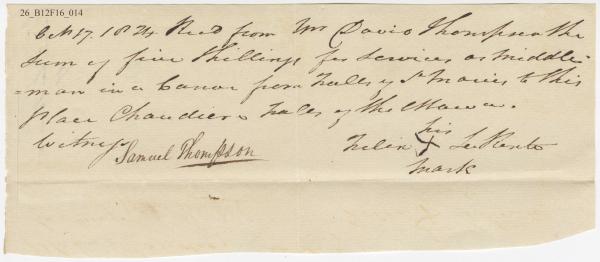 26_B12F16_014
Oct 17. 1824 Recd from Mr David Thompson the
Sum of five Shillings for Services as Middle-
-man in a Canoe from Falls of St Maries to this
place Chaudiere Falls of the Ottawa.
Witness Samuel Thompson
his
Felix X
mark